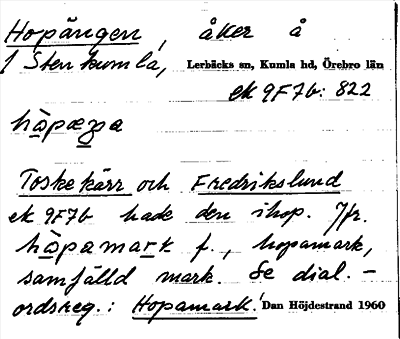 Hopängen, åker å
1 Stenkumla, Lerbäcks sn, Kumla hd, Örebro län
ek 9F7b: 822
håpæŋa
Toskekärr och Fredrikslund
ek 9F7b hade den ihop. Jfr.
håpamark f., hopamark,
samfälld mark. Se dial.-
ordsreg.: Hopamark! Dan Höjdestrand 1960